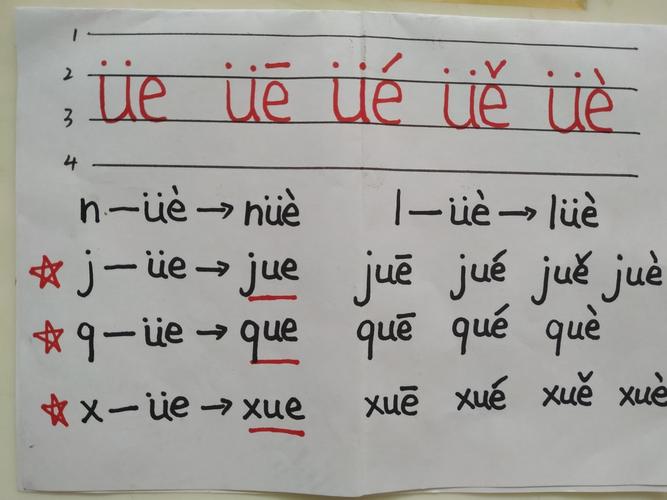 1
2
üe üē üé üě üè
3
4
n—üè→nüè l—üè→lüè
☆ j—üe→jue juē jué juě juè
☆ q—üe→que quē qué què
☆ x—üe→xue xuē xué xuě xuè